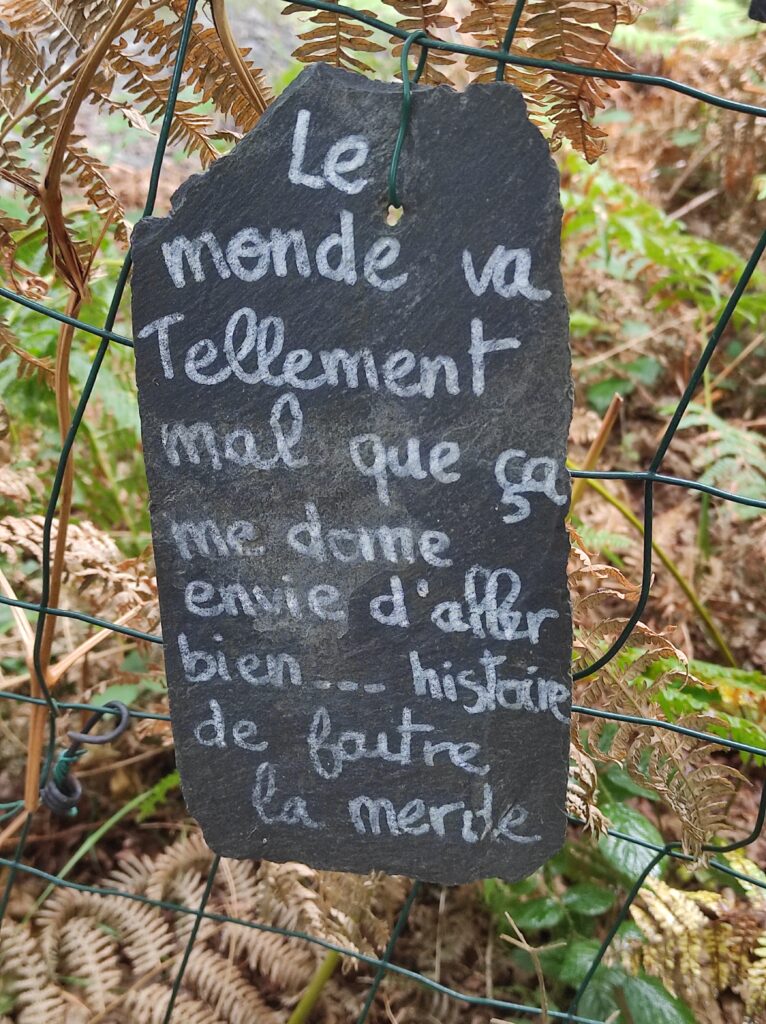 Le
monde va
Tellement
mal que ça
me donne
envie d'aller
bien --- histoire
de foutre
la merde